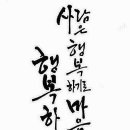 사람은 행복하기로 마음
행복하